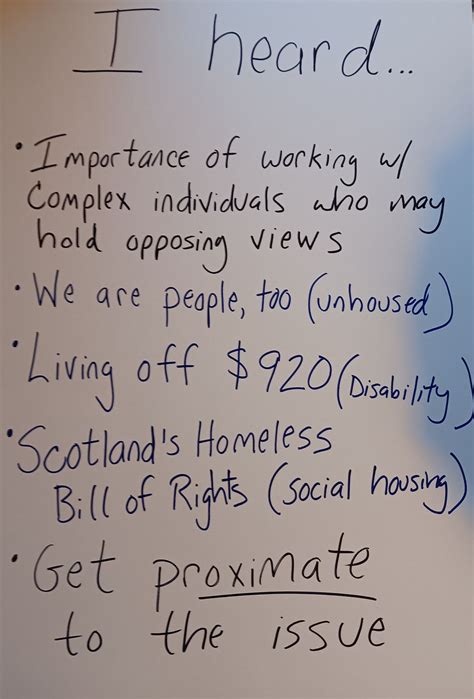 I heard...
• Importance of working w/
Complex individuals who may
hold opposing views
• We are people, too (unhoused)
• Living off $920 (Disability)
• Scotland's Homeless
Bill of Rights (social housing)
• Get proximate
to the issue